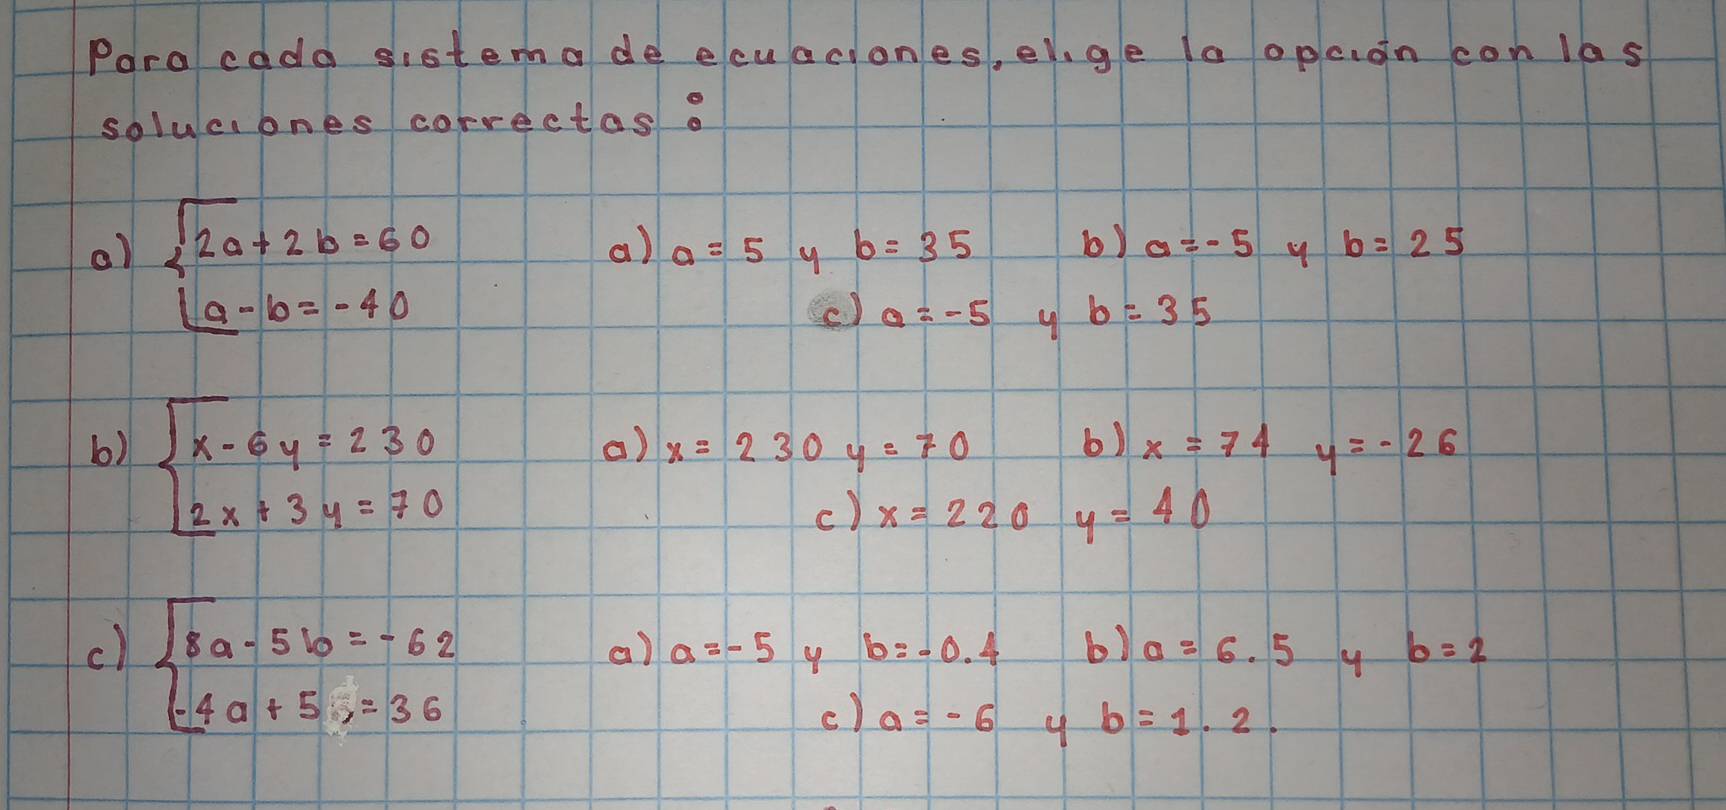 Para cada sistema de ecuaciones, elige la opción con las
soluciones correctas:
a) 2a+2b=60 a) a=5 y b=35 b) a=-5 y b=25
a-b=-40 c) a=-5 y b=35
b) x-6y=230 a) x=230 y=70 b) x=74 y=-26
2x+3y=70 c) x=220 y=40
c) 8a-5b=-62 a) a=-5 y b=-0.4 b) a=6.5 y b=2
-4a+5 =36 c) a=-6 y b=1.2.